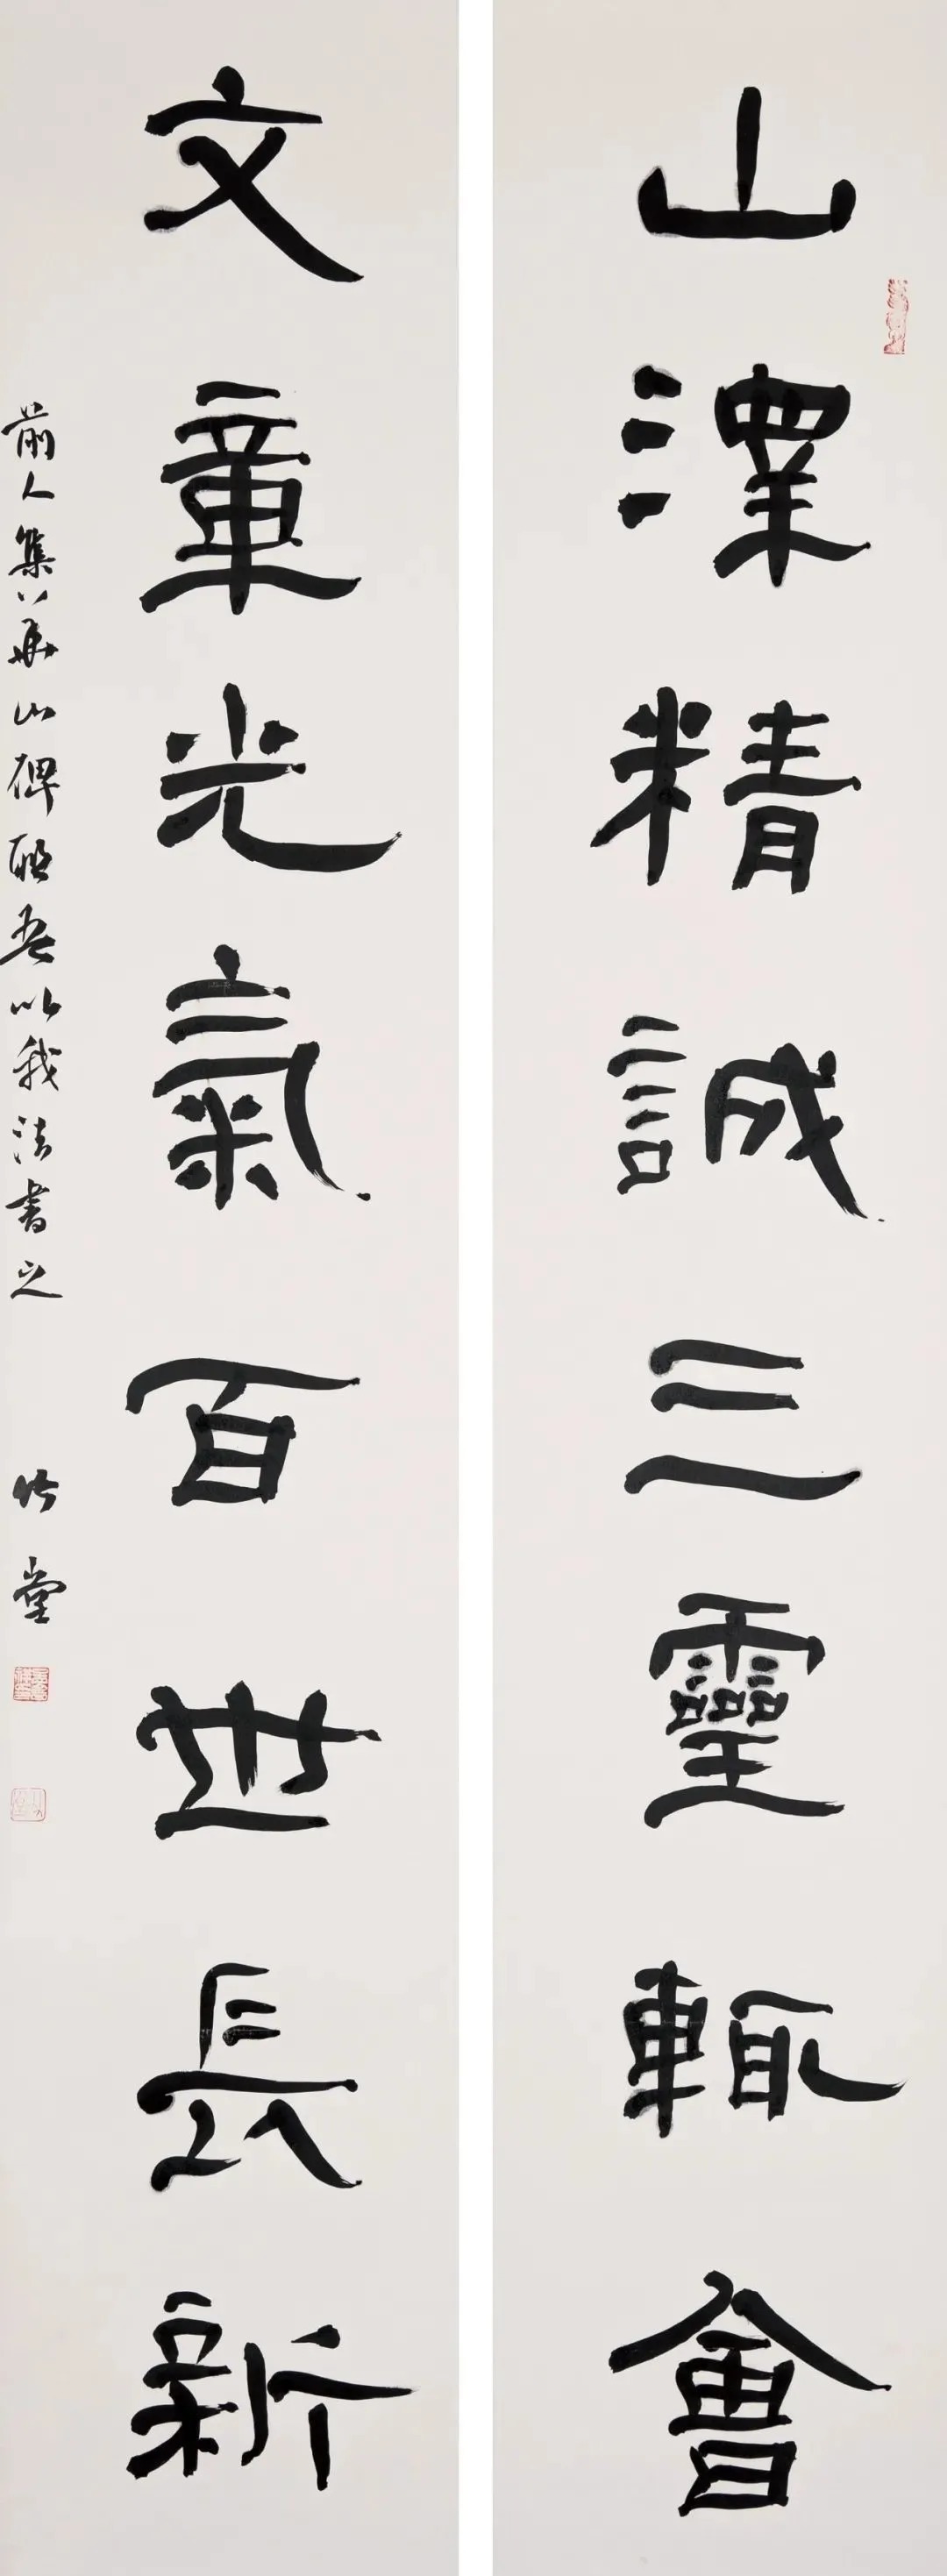 山澤精誠三靈輒會
文章光氣百世長新
前人集華山碑聯吾以我法書之
竹堂